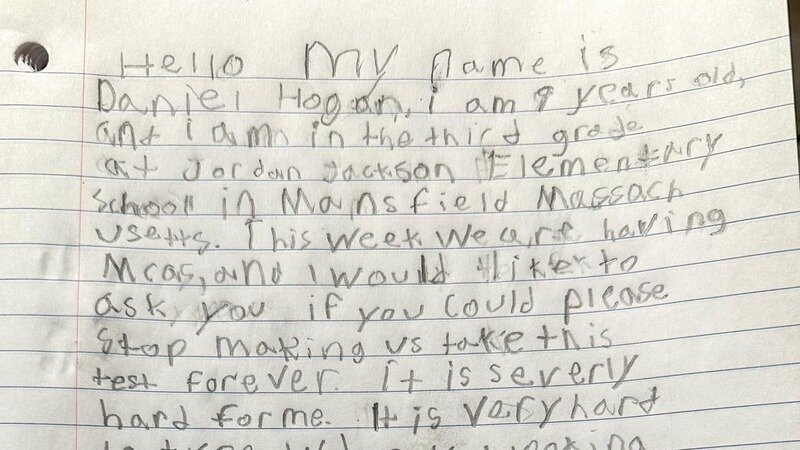 Hello My name is
Daniel Hogan, i am 9 years old,
and i am in the third grade
at Jordan Jackson Elementary
school in Mansfield Massach
usetts. This week we are having
Mcas, and I would like to
ask you if you could please
stop making us take this
test forever. it is severly
hard for me. It is vary hard